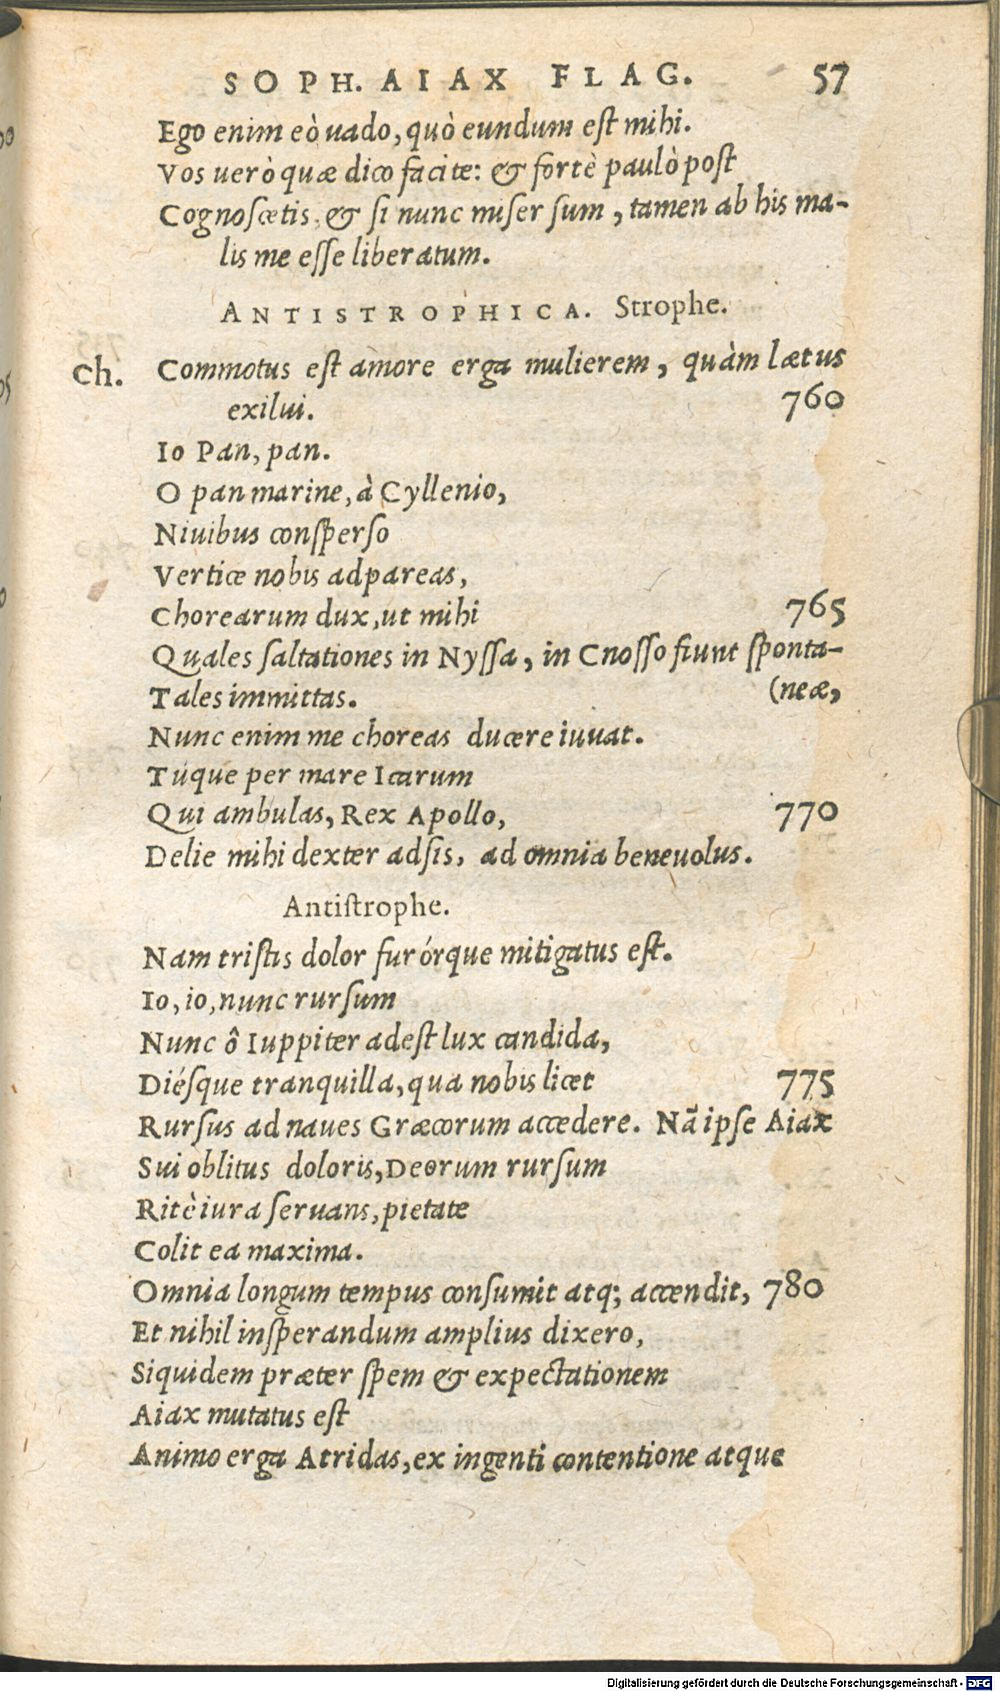 SOPH. AIAX FLAG. 57
Ego enim eò uado, quò eundum est mihi.
Vos uerò quæ dico facite: & fortè paulò post
Cognoscetis, & si nunc miser sum, tamen ab his ma-
lis me esse liberatum.
ANTISTROPHICA. Strophe.
Ch. Commotus est amore erga mulierem, quàm lætus
exilui. 760
Io Pan, pan.
O pan marine, à Cyllenio,
Niuibus consperso
Vertice nobis adpareas,
Chorearum dux, ut mihi 765
Quales saltationes in Nyssa, in Cnosso fiunt sponta-
Tales immittas. (neæ,
Nunc enim me choreas ducere iuuat.
Túque per mare Icarum
Qui ambulas, Rex Apollo, 770
Delie mihi dexter adsis, ad omnia beneuolus.
Antistrophe.
Nam tristis dolor furórque mitigatus est.
Io, io, nunc rursum
Nunc ô Iuppiter adest lux candida,
Diésque tranquilla, qua nobis licet 775
Rursus ad naues Græcorum accedere. Nã ipse Aiax
Sui oblitus doloris, Deorum rursum
Ritè iura seruans, pietate
Colit ea maxima.
Omnia longum tempus consumit atq; accendit, 780
Et nihil insperandum amplius dixero,
Siquidem præter spem & expectationem
Aiax mutatus est
Animo erga Atridas, ex ingenti contentione atque
Digitalisierung gefördert durch die Deutsche Forschungsgemeinschaft - DFG